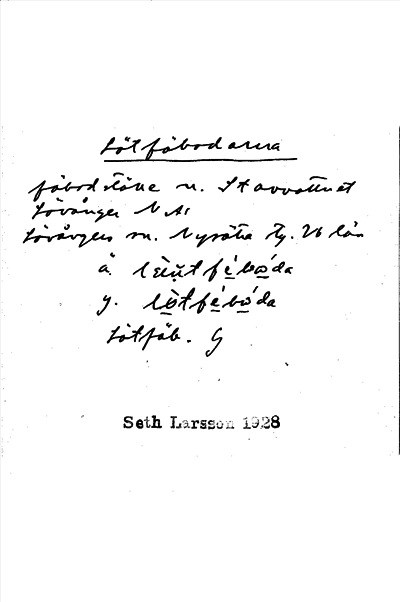 Lötfäbodarna
fäbodställe n. Stavvattnet
Lövånger N Ar
Lövångers sn. Nysätra tg. Vb län
ä. lèụtfé̱bo̱da
y. lö̱tfé̱bo̱da
Lötfäb. G
Seth Larsson 1928